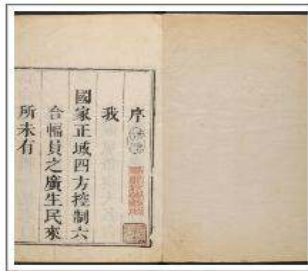 序
我
國家正域四方控制六
合幅員之廣生民來
所未有